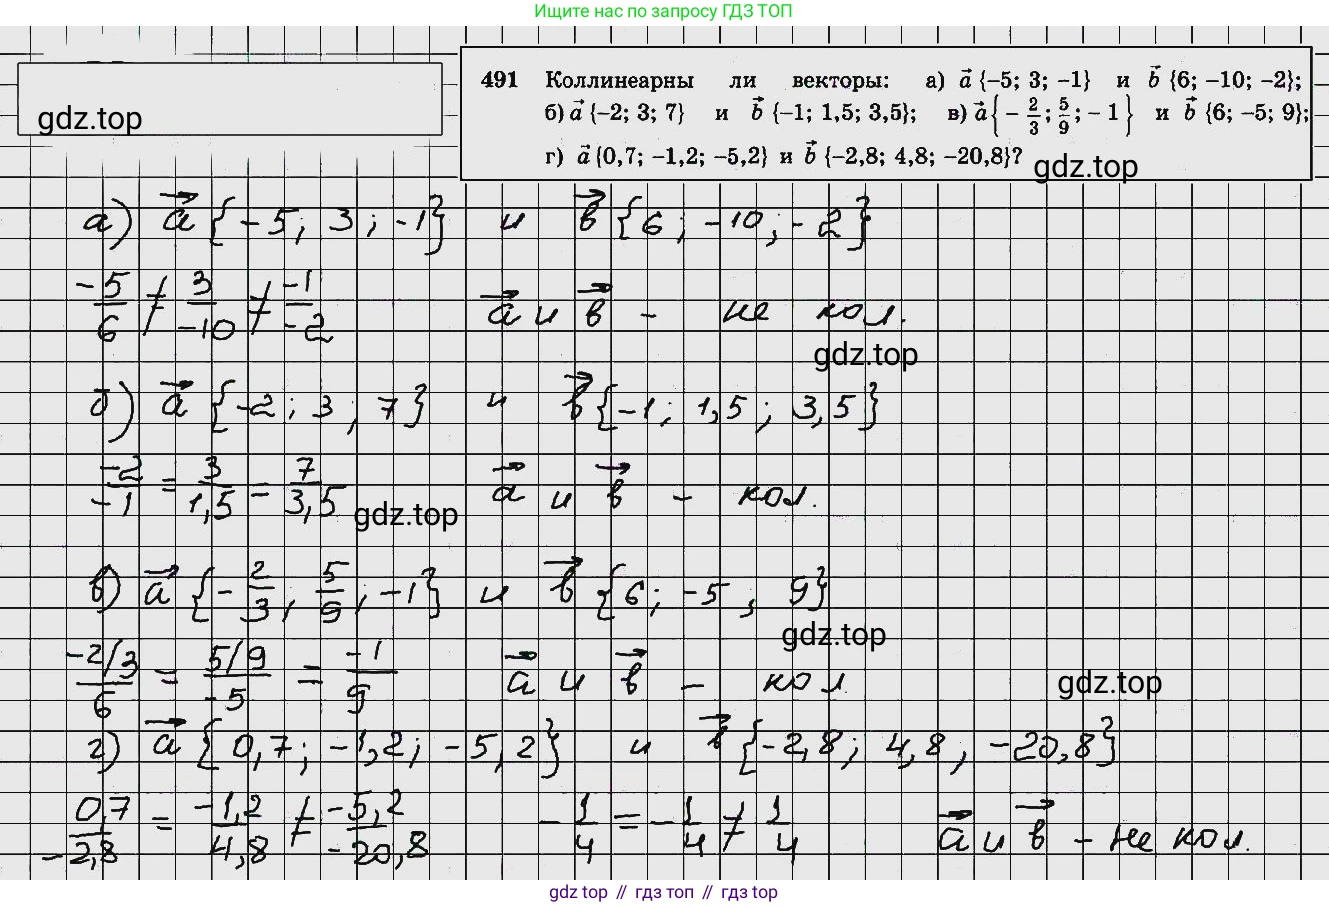 Ищите нас по запросу ГДЗ ТОП
gdz.top
491 Коллинеарны ли векторы: а) a⃗ {−5; 3; −1} и b⃗ {6; −10; −2};
б) a⃗ {−2; 3; 7} и b⃗ {−1; 1,5; 3,5}; в) a⃗ {−2/3; 5/9; −1} и b⃗ {6; −5; 9};
г) a⃗ {0,7; −1,2; −5,2} и b⃗ {−2,8; 4,8; −20,8}?
gdz.top
а) a⃗ {−5; 3; −1} и b⃗ {6; −10; −2}
−5/6 ≠ 3/−10 ≠ −1/−2 a⃗ и b⃗ − не кол.
gdz.top
б) a⃗ {−2; 3; 7} и b⃗ {−1; 1,5; 3,5}
−2/−1 = 3/1,5 = 7/3,5 a⃗ и b⃗ − кол.
gdz.top
в) a⃗ {−2/3, 5/9, −1} и b⃗ {6; −5, 9}
gdz.top
−2/3/6 = 5/9/−5 = −1/9 a⃗ и b⃗ − кол
gdz.top
г) a⃗ {0,7; −1,2; −5,2} и b⃗ {−2,8; 4,8, −20,8}
0,7/−2,8 = −1,2/4,8 ≠ −5,2/−20,8 −1/4 = −1/4 ≠ 1/4 a⃗ и b⃗ − не кол.
gdz top // гдз топ // gdz top